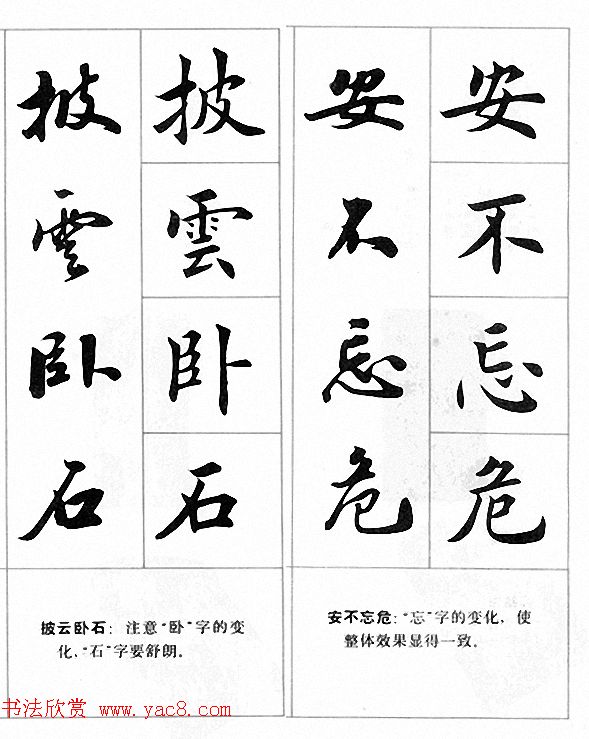 披雲卧石
披雲卧石
安不忘危
安不忘危
披云卧石：注意“卧”字的变
化，“石”字要舒朗。
安不忘危：“忘”字的变化，使
整体效果显得一致。
书法欣赏 www.yac8.com